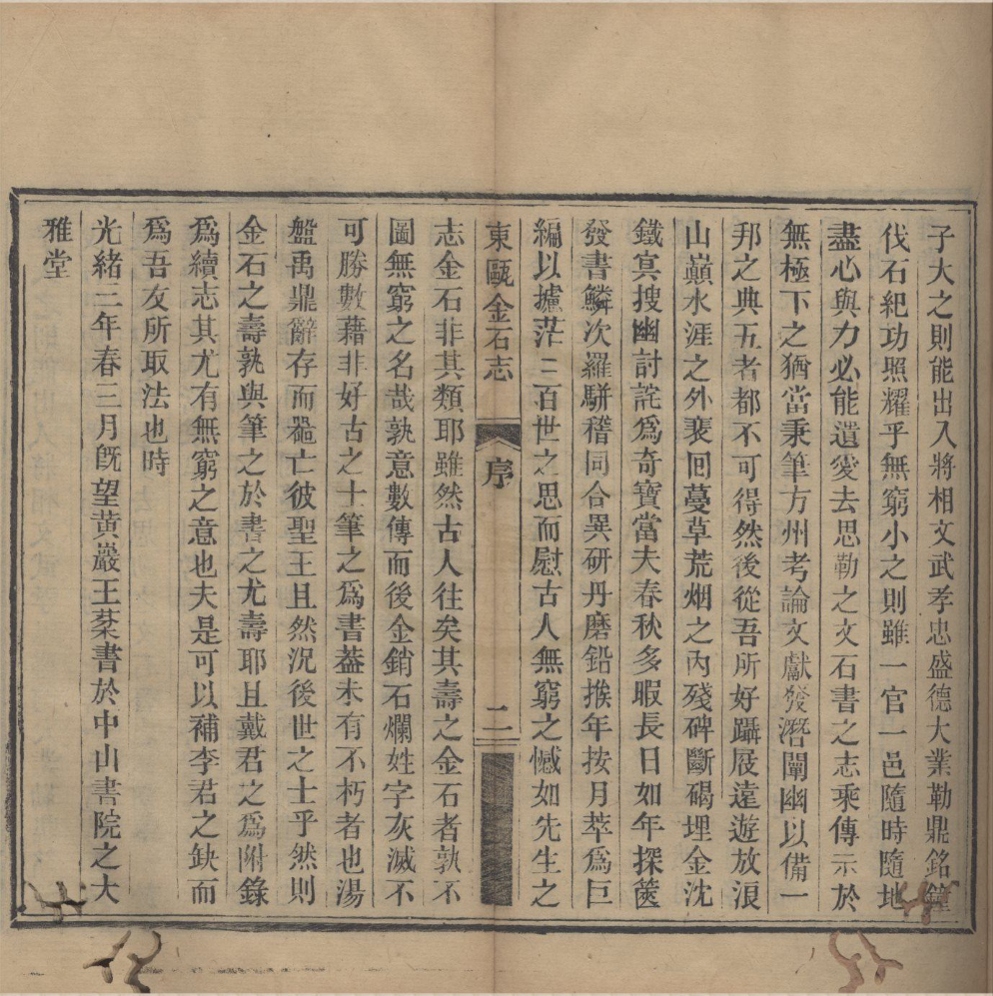 子大之則能出入將相文武孝忠盛德大業勒鼎銘鐘
伐石紀功照耀乎無窮小之則雖一官一邑隨時隨地
盡心與力必能遺愛去思勒之文石書之志乘傳示於
無極下之猶當秉筆方州考論文獻發潛闡幽以備一
邦之典五者都不可得然後從吾所好躡屐遠遊放浪
山巔水涯之外裵回蔓草荒烟之內殘碑斷碣埋金沈
鐵冥搜幽討詫爲奇寶當夫春秋多暇長日如年探篋
發書鱗次羅駢稽同合異研丹磨鉛揆年按月萃爲巨
編以攄茫三百世之思而慰古人無窮之憾如先生之
東甌金石志
序
二
志金石非其類耶雖然古人往矣其壽之金石者孰不
圖無窮之名哉孰意數傳而後金銷石爛姓字灰滅不
可勝數藉非好古之士筆之爲書葢未有不朽者也湯
盤禹鼎辭存而噐亡彼聖王且然況後世之士乎然則
金石之壽孰與筆之於書之尤壽耶且戴君之爲附錄
爲續志其尤有無窮之意也夫是可以補李君之缺而
爲吾友所取法也時
光緒三年春三月旣望黄巖王棻書於中山書院之大
雅堂